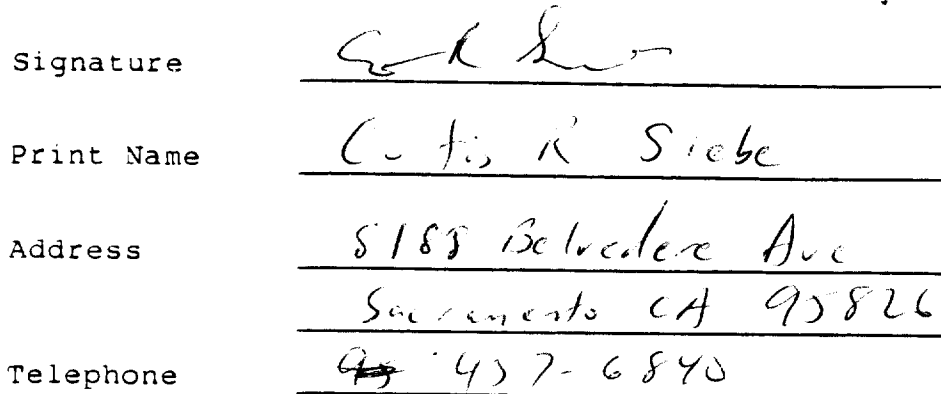 Signature
Print Name Curtis R Siebe
Address 8188 Belvedere Ave
Sacramento CA 95826
Telephone 457-6840